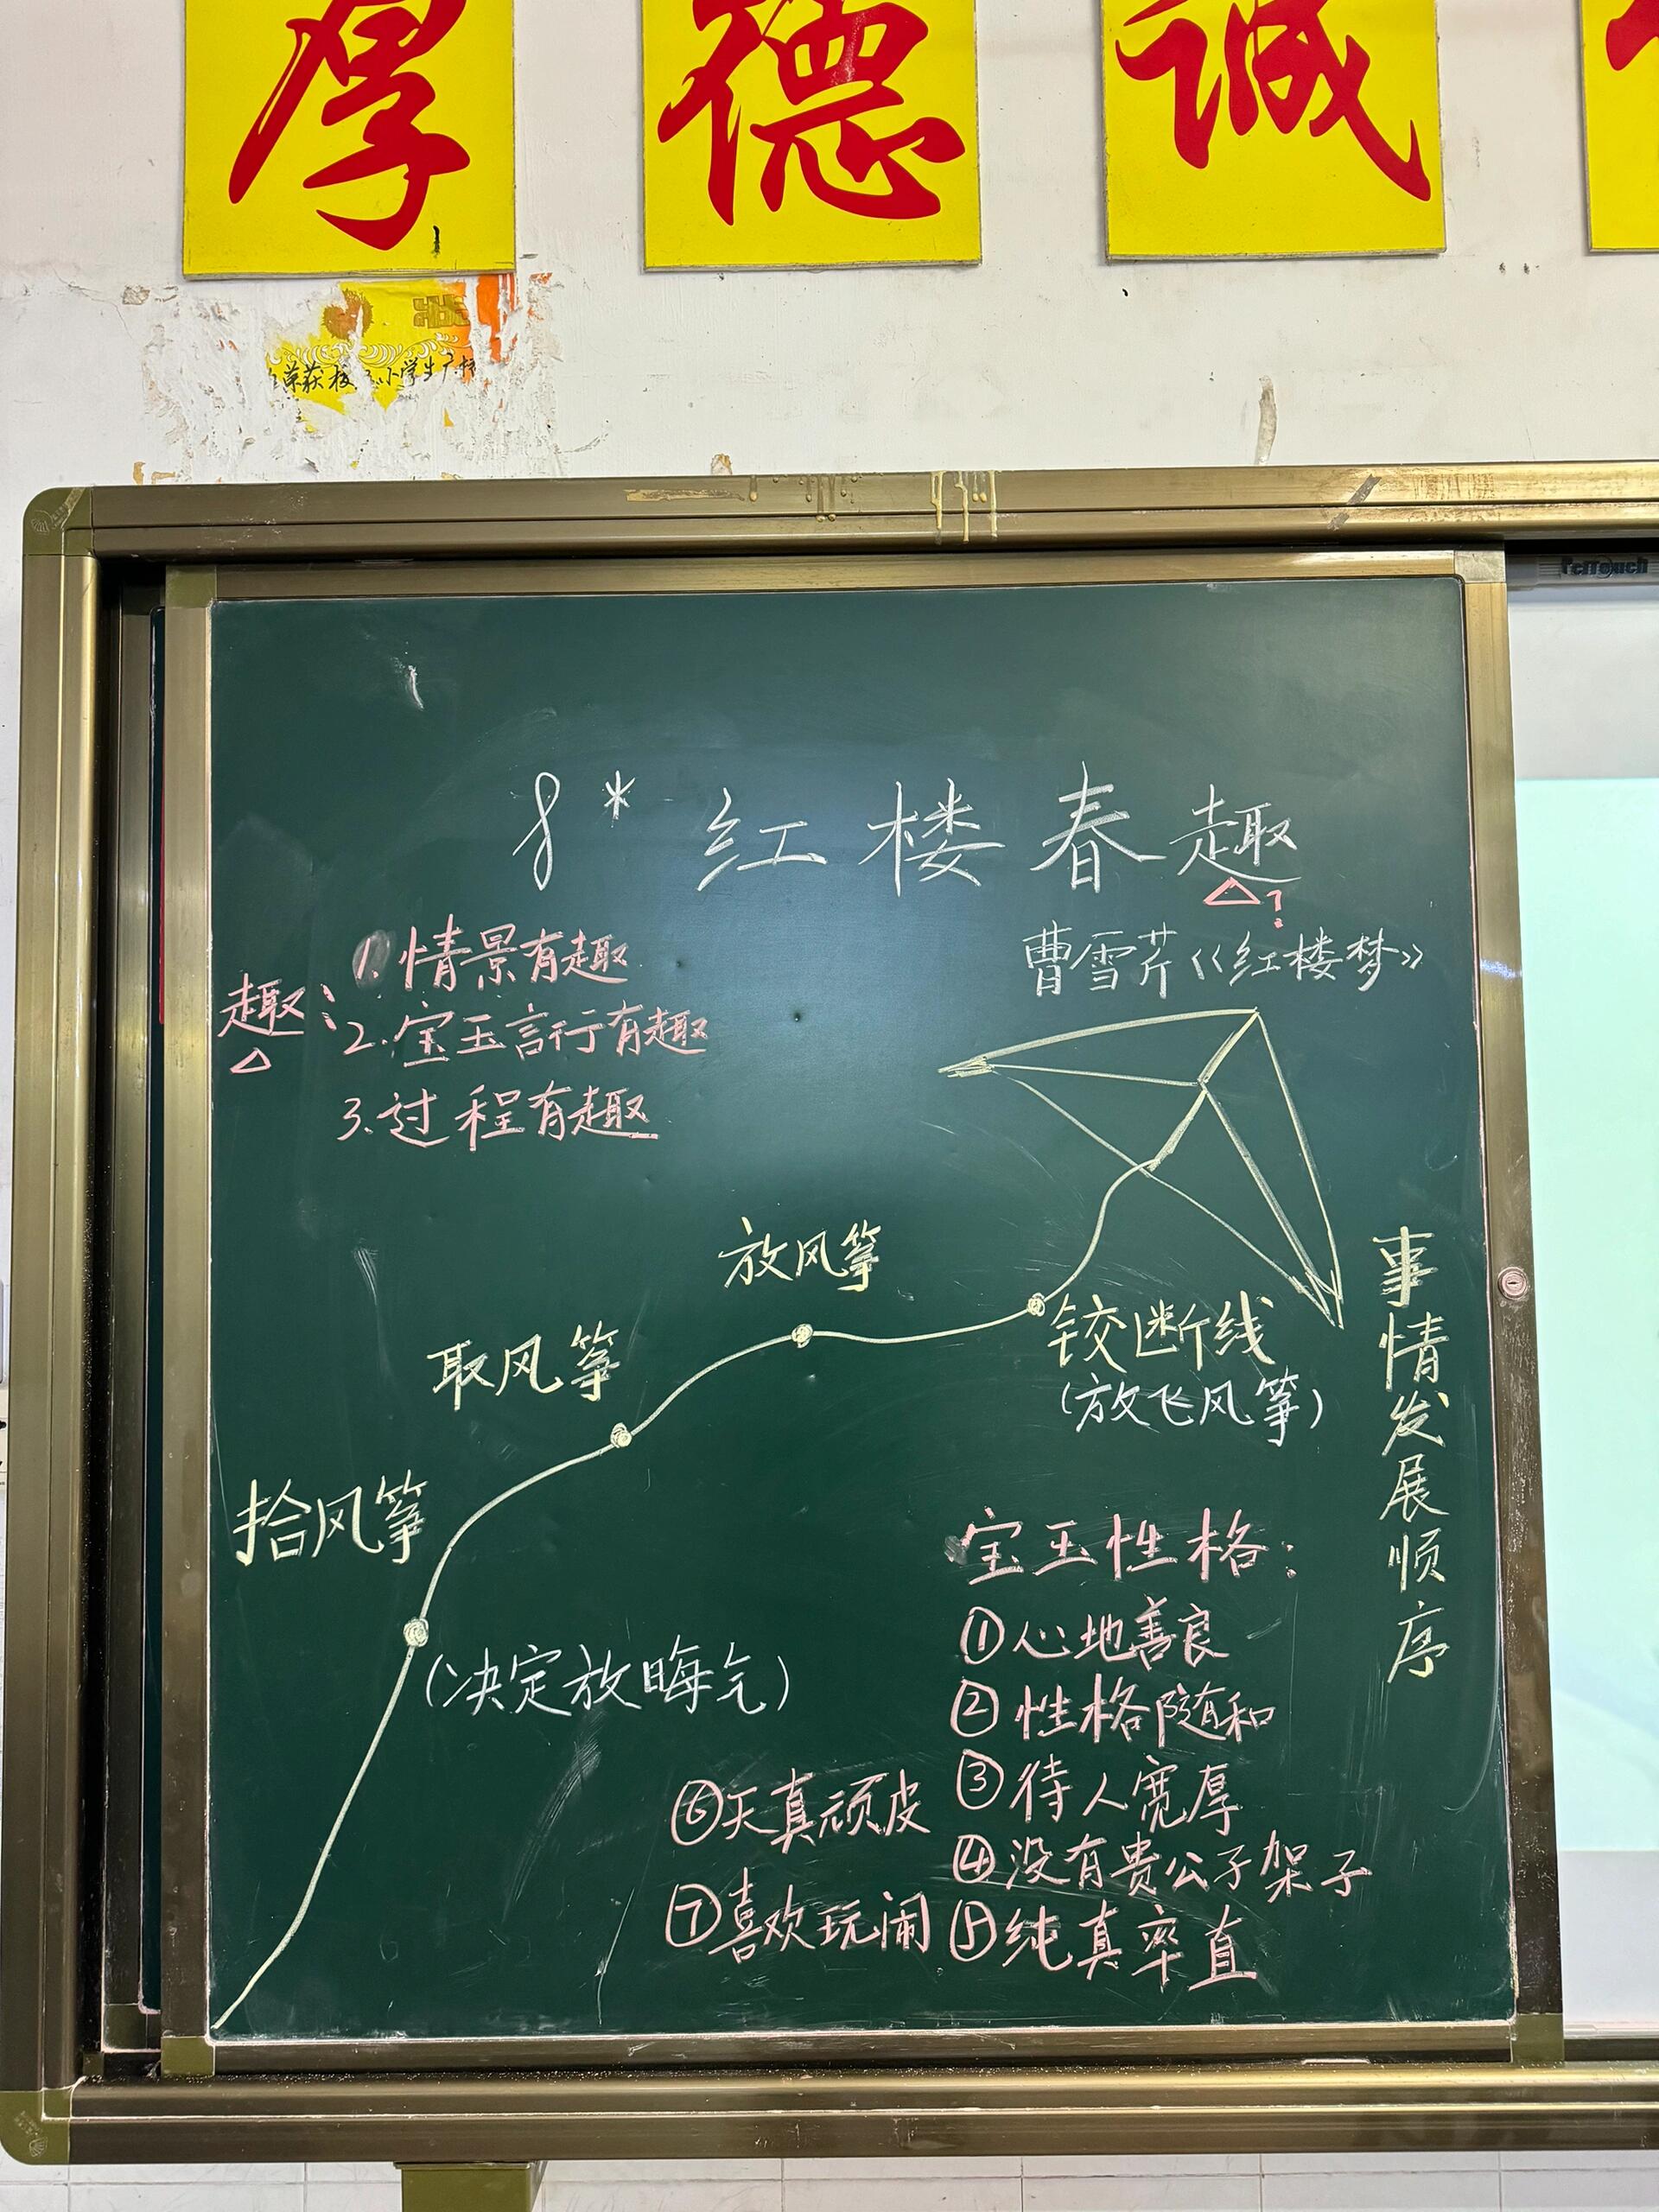 厚 德 诚
荣获校
小学生
FerTouch
8* 红楼春趣
?
曹雪芹《红楼梦》
趣:
1. 情景有趣
2. 宝玉言行有趣
3. 过程有趣
放风筝
取风筝
铰断线
(放飞风筝)
拾风筝
(决定放晦气)
事情发展顺序
宝玉性格:
①心地善良
②性格随和
③待人宽厚
④没有贵公子架子
⑤纯真率直
⑥天真顽皮
⑦喜欢玩闹